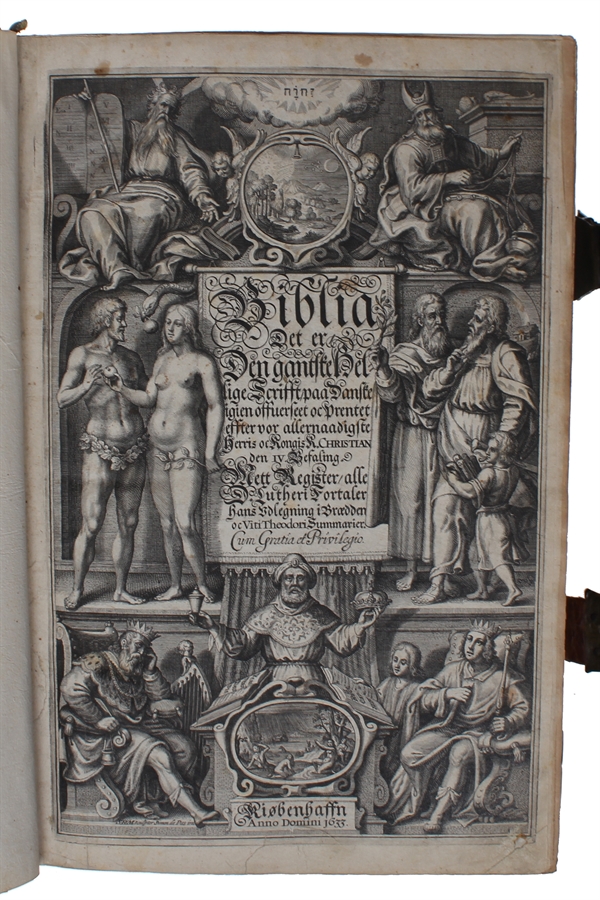 יהוה
Biblia
Det er
Den gantske Hel-
lige Scrifft paa Danske
igien offuerseet oc Prentet
effter vor allernaadigste
Herris oc Kongis K. CHRISTIAN
den IV Befaling.
Mett Register/alle
D. Lutheri Fortaler
Hans Vdlegning i Brædden
oc Viti Theodori Summarier.
Cum Gratia et Privilegio.
Kiøbenhaffn
Anno Domini 1633.